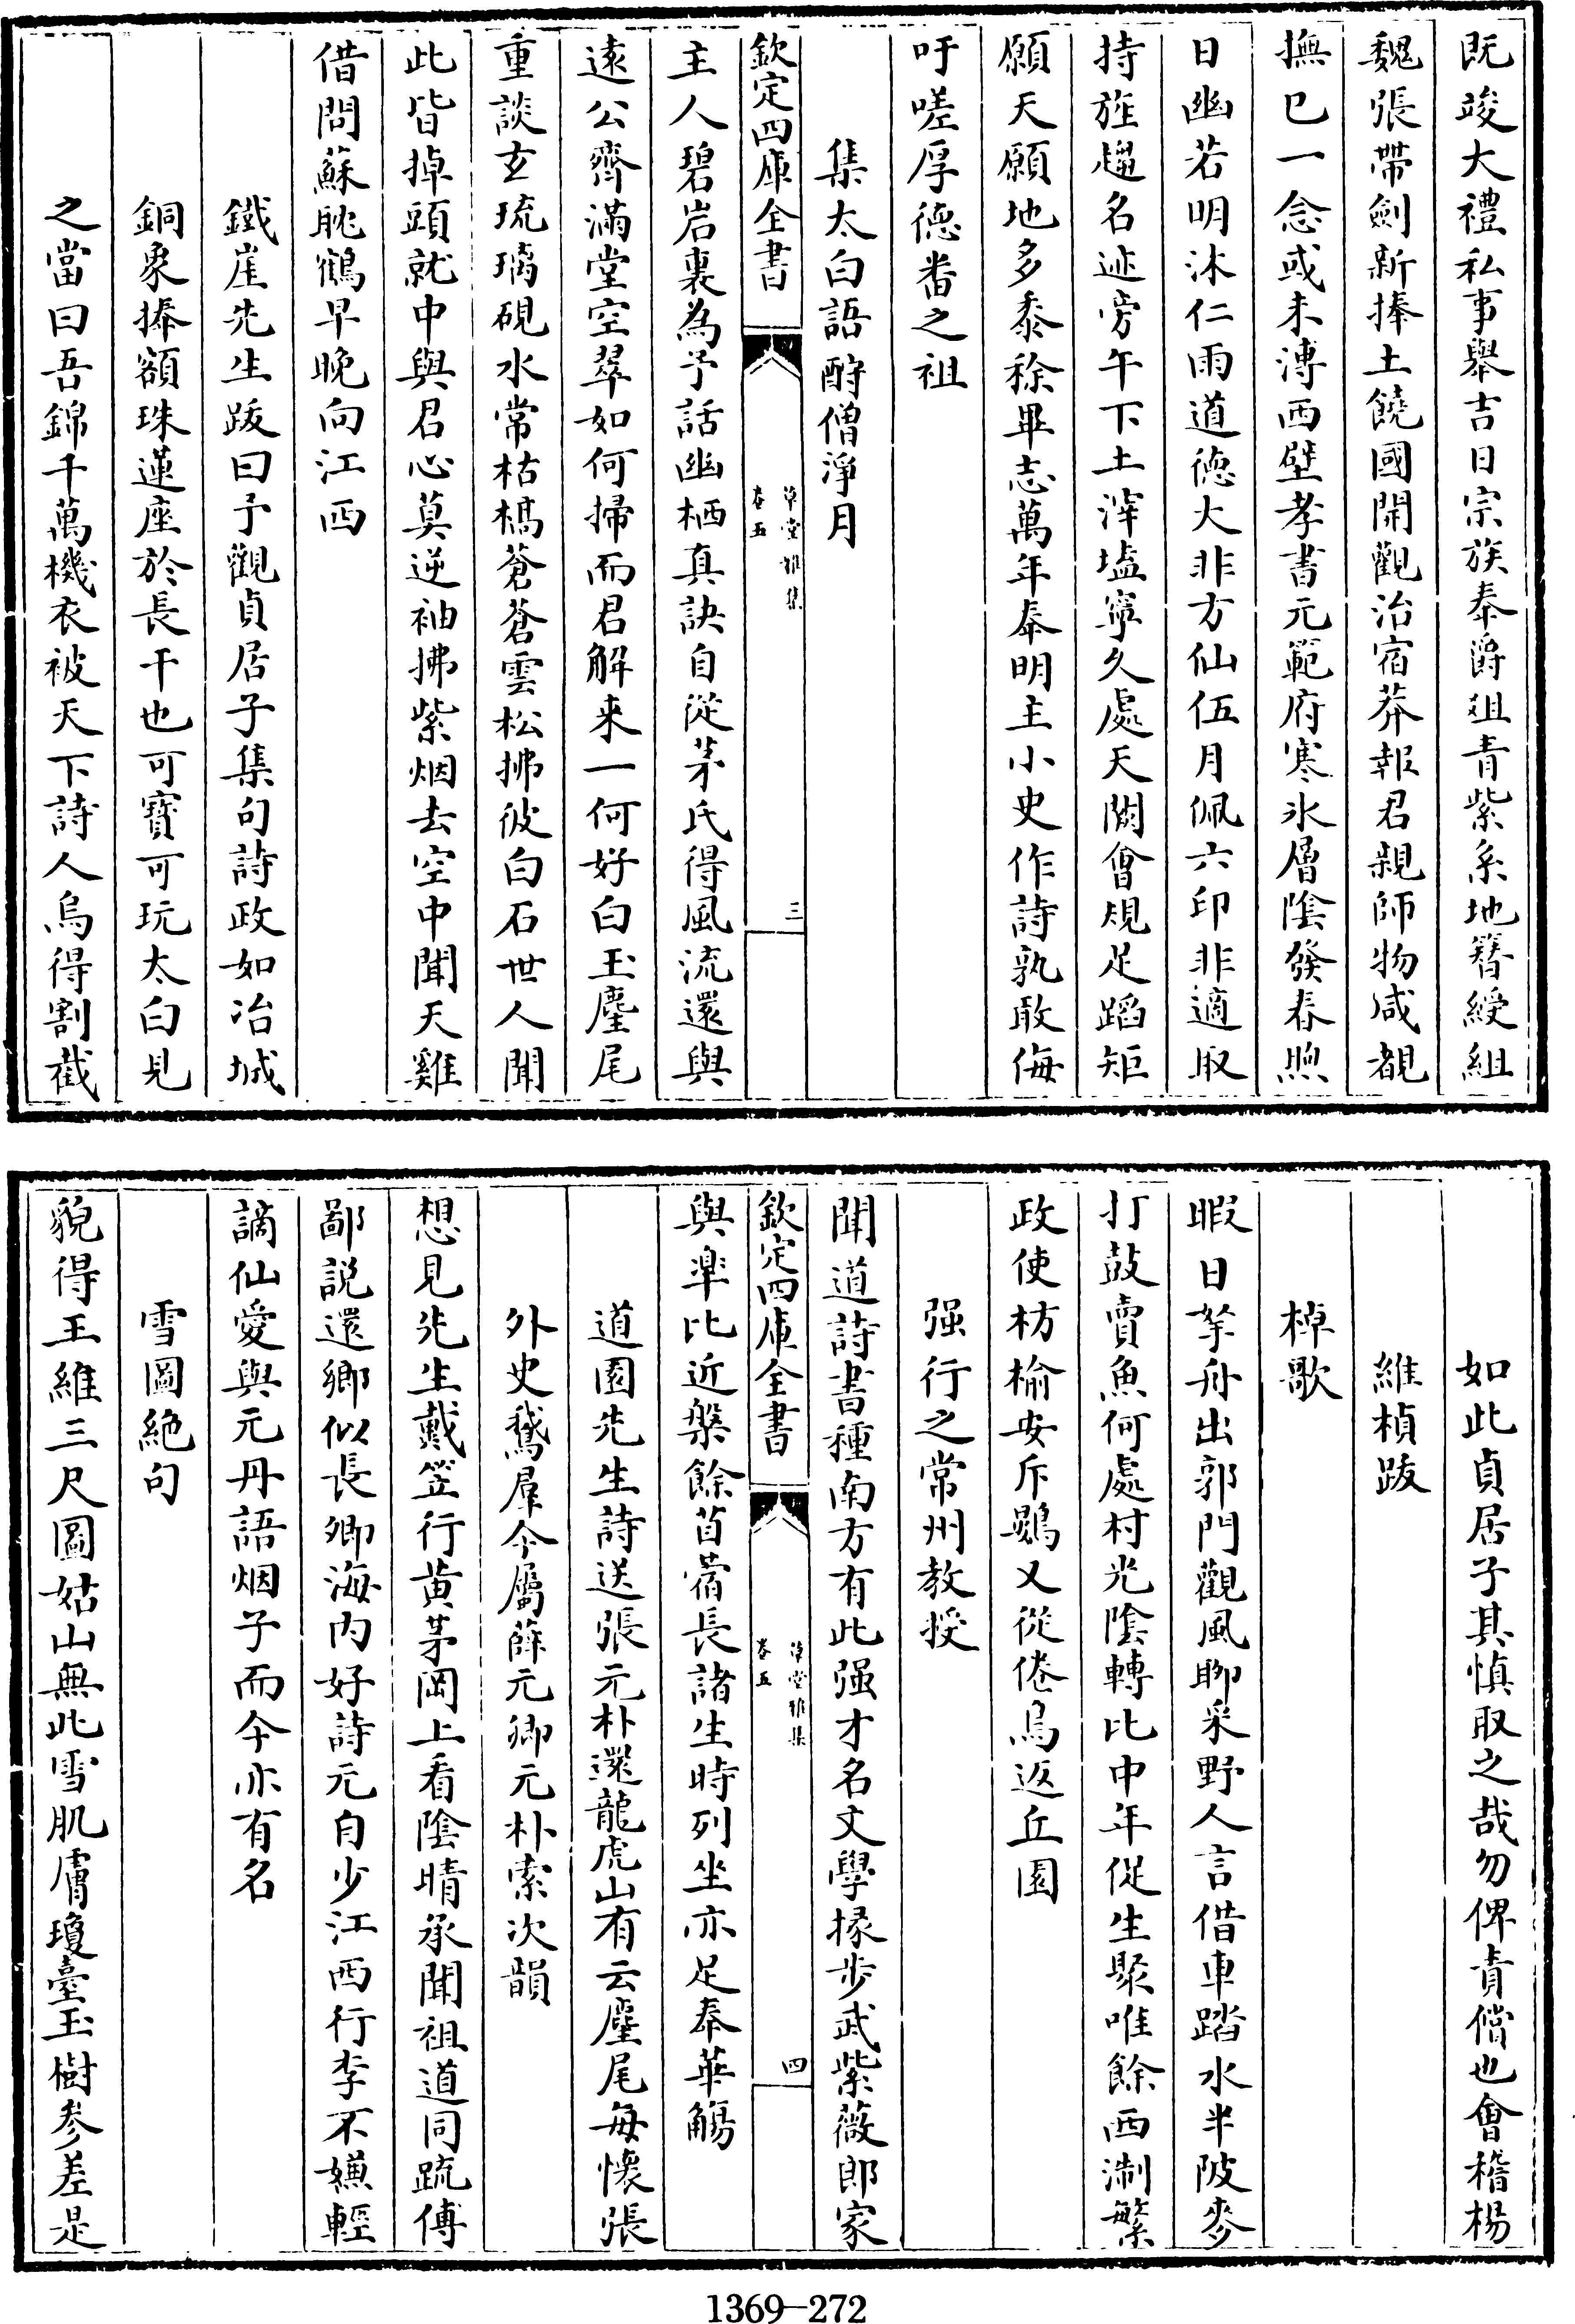 既竣大禮私事舉吉日宗族奉爵俎青紫系地簪綬組
魏張帶劍新捧土饒國開觀治宿莽報君親師物咸覩
撫已一念或未溥西壁孝書元範府寒氷層陰發春煦
日幽若明沐仁雨道徳大非方仙伍月佩六印非適取
持旌趨名迹旁午下土滓塩寧久處天闕會規足蹈矩
願天願地多黍稌畢志萬年奉明主小史作詩孰敢侮
吁嗟厚徳畨之祖
集太白語酧僧淨月
欽定四庫全書
草堂雅集
卷五
三
主人碧岩裏為予話幽栖真訣自從茅氏得風流還與
逺公齊滿堂空翠如何掃而君解来一何好白玉麈尾
重談玄琉璃硯水常枯槁蒼蒼雲松拂彼白石世人聞
此皆掉頭就中與君心莫逆袖拂紫烟去空中聞天雞
借問蘇耽鶴早晚向江西
鐵崖先生跋曰予觀貞居子集句詩政如冶城
銅象捧額珠蓮座於長干也可寶可玩太白見
之當曰吾錦千萬機衣被天下詩人烏得割截
如此貞居子其慎取之哉勿俾責償也會稽楊
維楨跋
棹歌
暇日拏舟出郭門觀風聊采野人言借車踏水半陂麥
打鼓賣魚何處村光陰轉比中年促生聚唯餘西淛繁
政使枋榆安斥鷃又從倦鳥返丘園
强行之常州教授
聞道詩書種南方有此强才名文學掾步武紫薇郎家
欽定四庫全書
草堂雅集
卷五
四
與樂比近槃餘苜蓿長諸生時列坐亦足奉華觴
道園先生詩送張元朴還龍虎山有云麈尾每懷張
外史鵞羣今屬薛元卿元朴索次韻
想見先生戴笠行黄茅岡上看陰晴承聞祖道同疏傅
鄙說還鄉似長卿海内好詩元自少江西行李不嫌輕
謫仙愛與元丹語烟子而今亦有名
雪圖絶句
貌得王維三尺圖姑山無此雪肌膚瓊臺玉樹參差是
1369—272